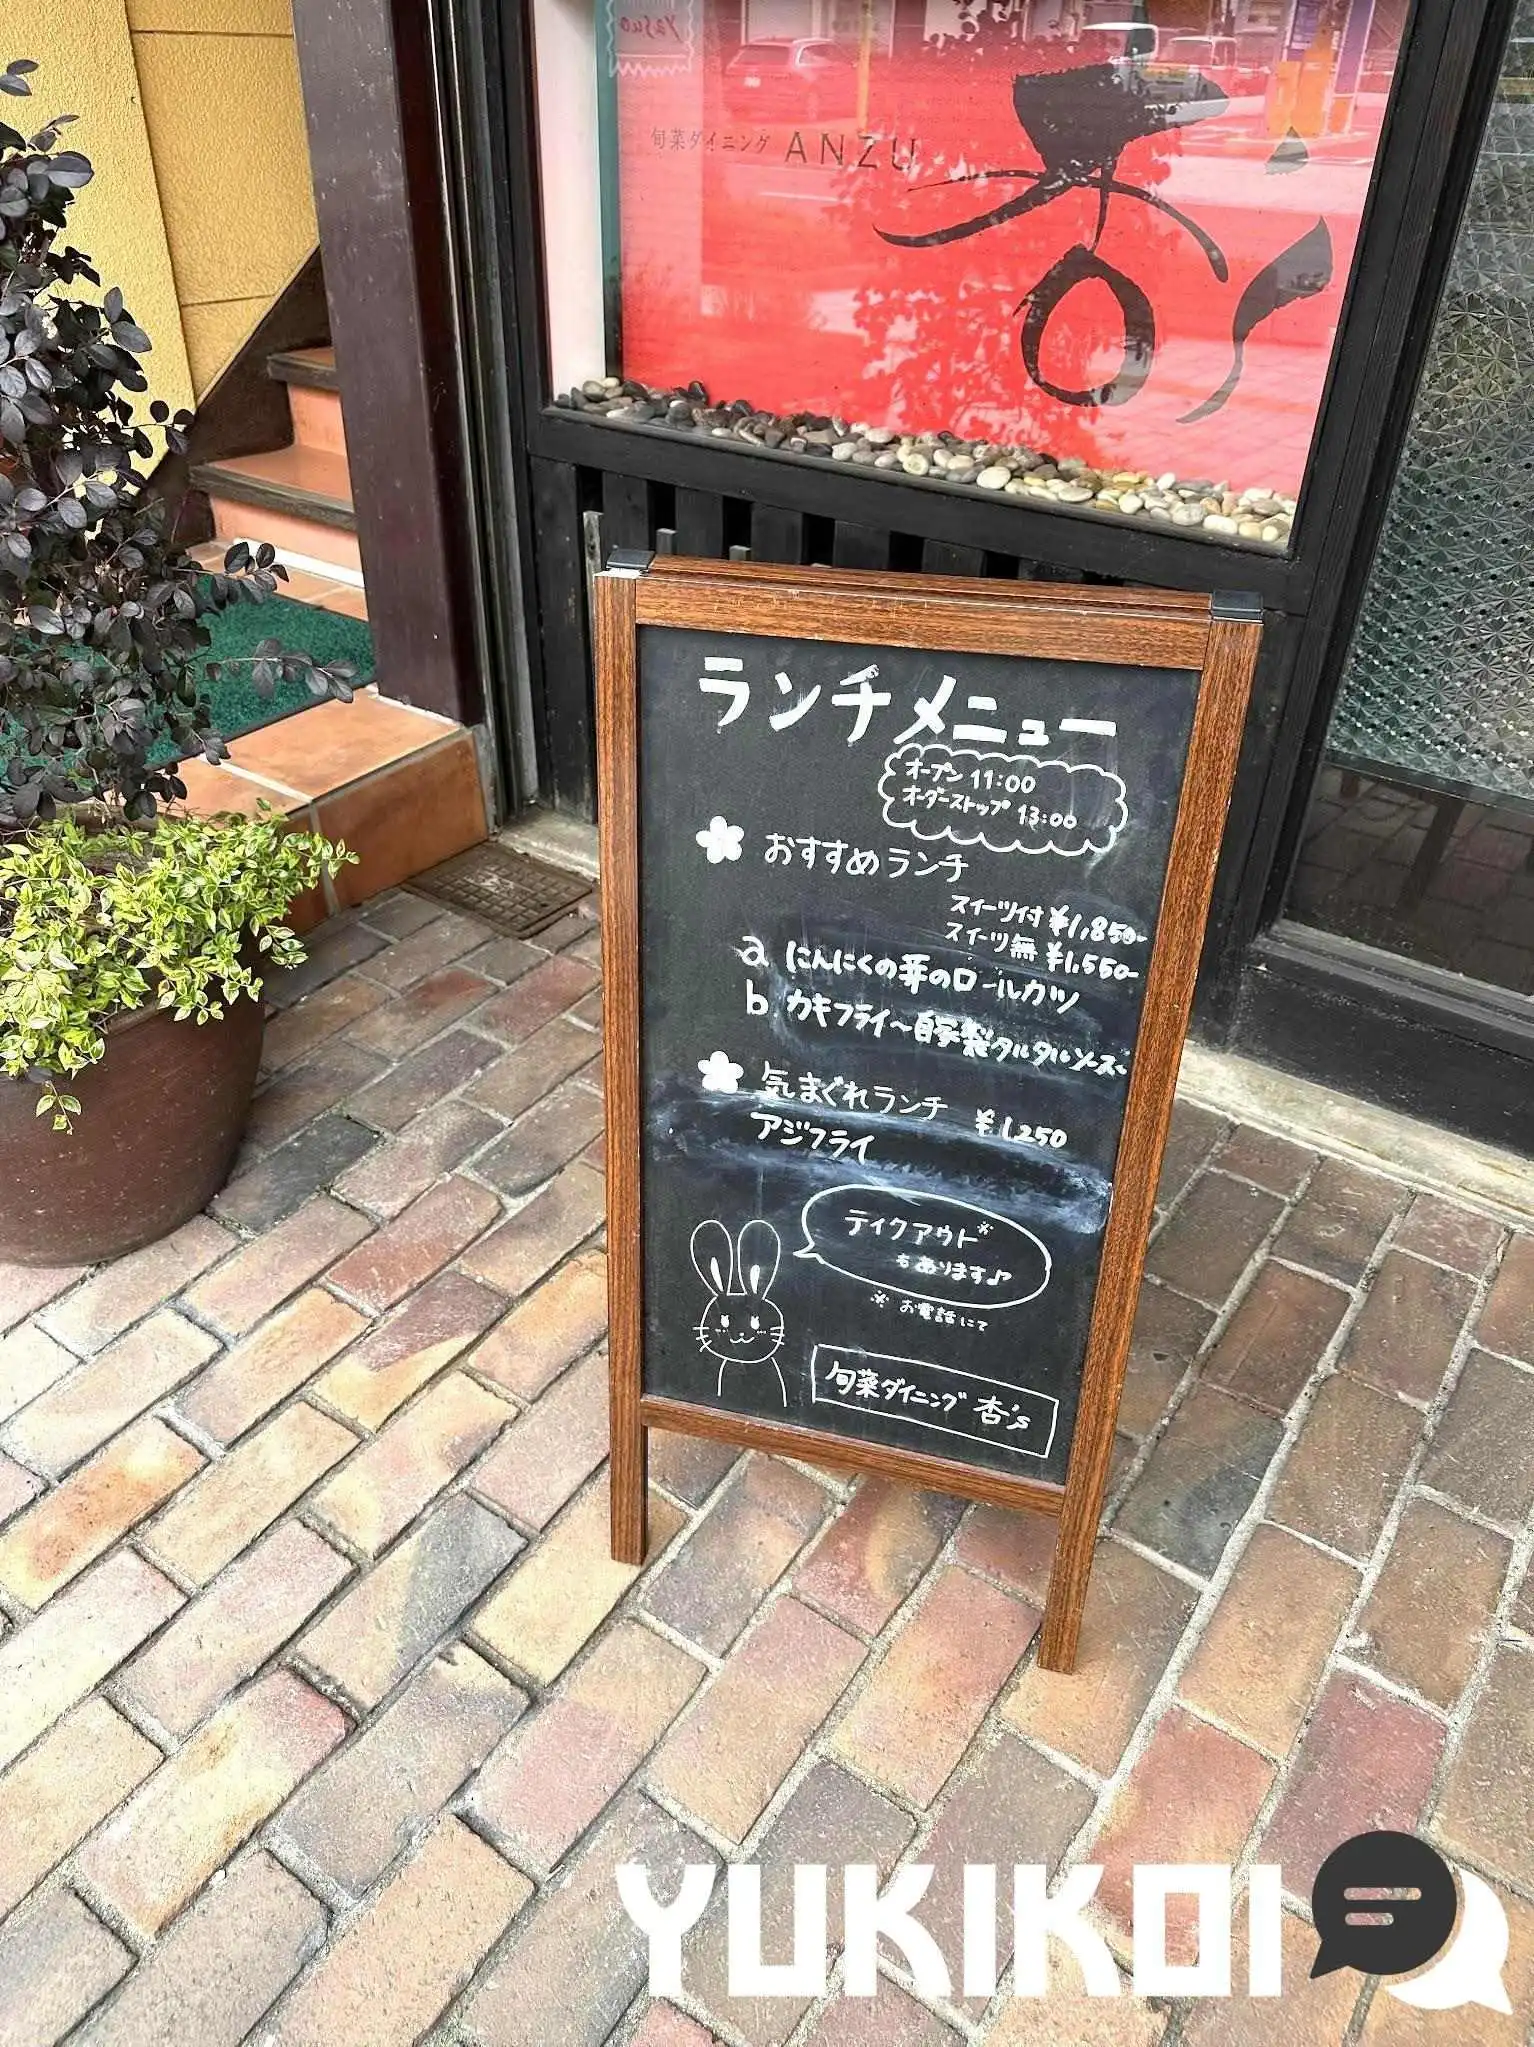 yasuo
旬菜ダイニング ANZU
杏's
ランチメニュー
オープン 11:00
オーダーストップ 13:00
おすすめランチ
スイーツ付 ¥1,850-
スイーツ無 ¥1,550-
a にんにくの芽のロールカツ
b カキフライ～自家製タルタルソース～
気まぐれランチ ¥1,250
アジフライ
テイクアウト※
もあります♪
※ お電話にて
旬菜ダイニング 杏's
YUKIKOI